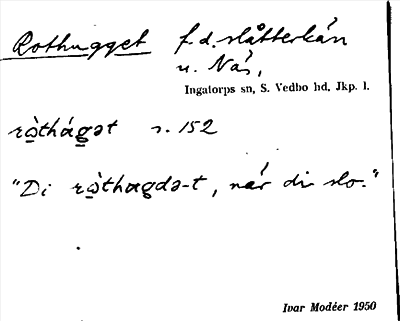 Rothugget f.d. slåtterkärr
u. Näs,
Ingatorps sn, S. Vedbo hd, Jkp. l.
rò̱thág̱ət s. 152
"Di rò̱thag̱də-t, när di slo."
Ivar Modéer 1950